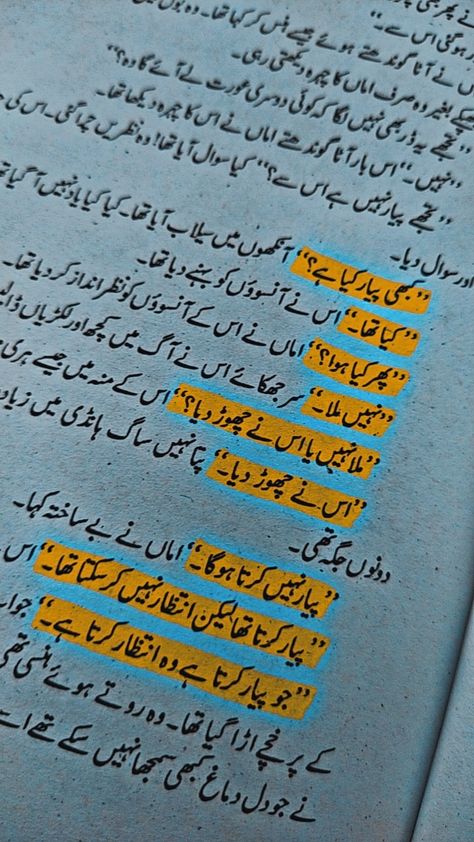 ہو گئی اس سے۔"
نے آٹا گوندھتے ہوئے جیسے ہنس کر کہا تھا۔ وہ
بغیر وہ صرف اماں کا چہرہ دیکھتی رہی۔
"تجھے یہ ڈر بھی نہیں لگا کہ کوئی دوسری عورت لے آئے گا وہ؟"
"نہیں۔" اس بار آٹا گوندھتے اماں نے اس کا چہرہ دیکھا تھا۔
"تجھے پیار نہیں ہے اس سے؟" کیا سوال آیا تھا! وہ نظریں چرا گئی۔ اس کی
اور سوال دیا۔
"کبھی پیار کیا ہے؟" آنکھوں میں سیلاب آیا تھا۔ کیا کیا یاد نہیں آ گیا تھا
"کیا تھا۔" اس نے آنسوؤں کو بہنے دیا تھا۔
"پھر کیا ہوا؟" اماں نے اس کے آنسوؤں کو نظر انداز کر دیا تھا۔
"نہیں ملا۔" سر جھکائے اس نے آگ میں کچھ اور لکڑیاں
"ملا نہیں یا اس نے چھوڑ دیا؟" اس کے منہ میں جیسے ہری
"اس نے چھوڑ دیا۔" پتا نہیں ساگ ہانڈی میں
دونوں جگہ تھی۔
"پیار نہیں کرتا ہو گا۔" اماں نے بے ساختہ کہا۔
"پیار کرتا تھا لیکن انتظار نہیں کر سکتا تھا۔" اس
"جو پیار کرتا ہے وہ انتظار کرتا ہے۔" جوا
کے پرخچے اڑا گیا تھا۔ وہ روتے ہوئے ہنسی تھی
نے جو دل و دماغ کبھی سمجھا نہیں سکے تھے